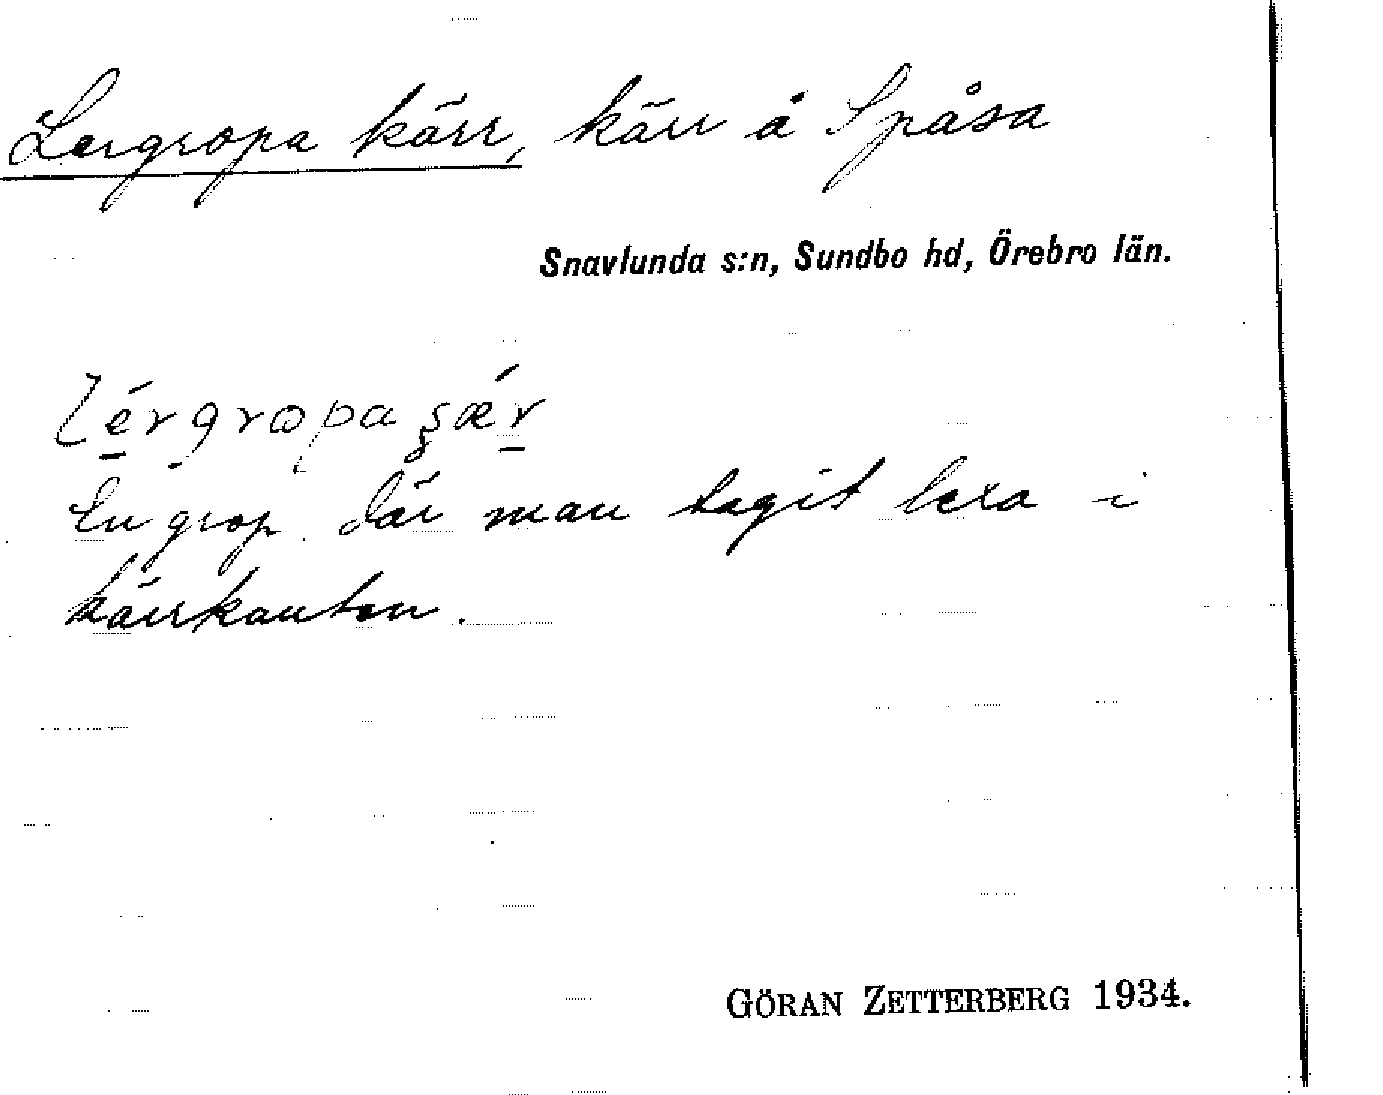 Lergropa kärr, kärr å Spåsa
Snavlunda s:n, Sundbo hd, Örebro län.
lérgropaʂǽr
En grop där man tagit lera i
kärrkanten.
GÖRAN ZETTERBERG 1934.